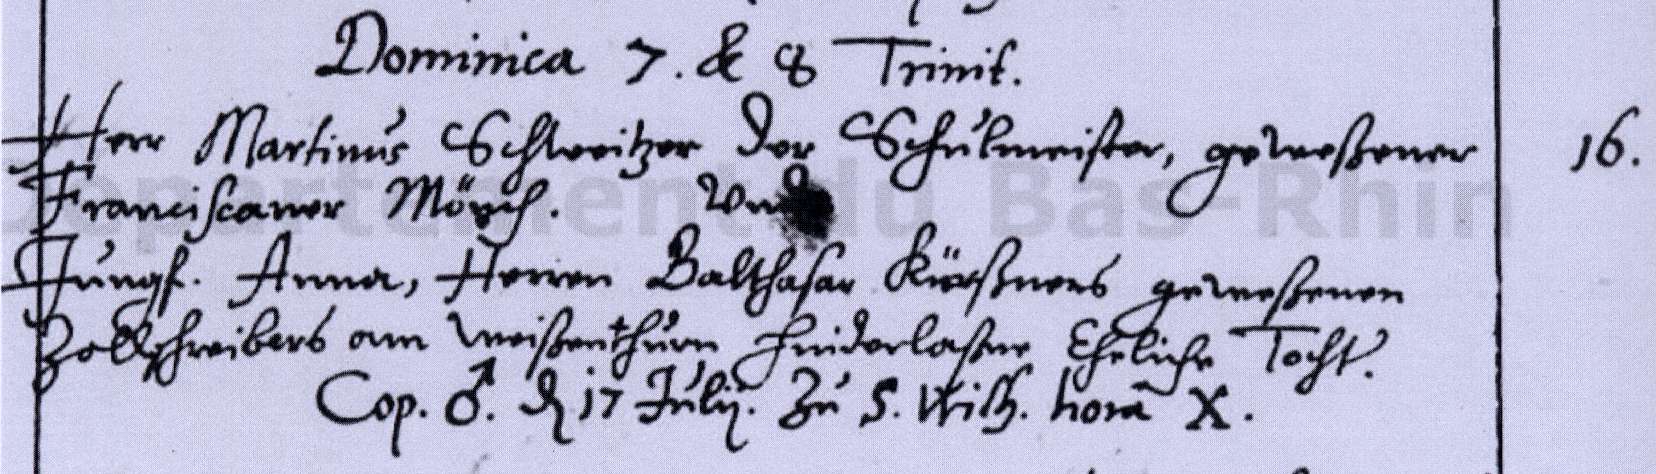 Dominica 7. & 8 Trinit.
Herr Martinus Schweitzer der Schulmeister, geweßener 16.
Franciscaner Mönch. Vnd
Jungf. Anna, Herren Balthasar Kürßners geweßenen
Zollschreibers am weißenthurn hinderlaßne Eheliche Tocht.
Cop. ♂. d 17 Julij. Zu S. Wilh. hora X.
Departement du Bas-Rhin